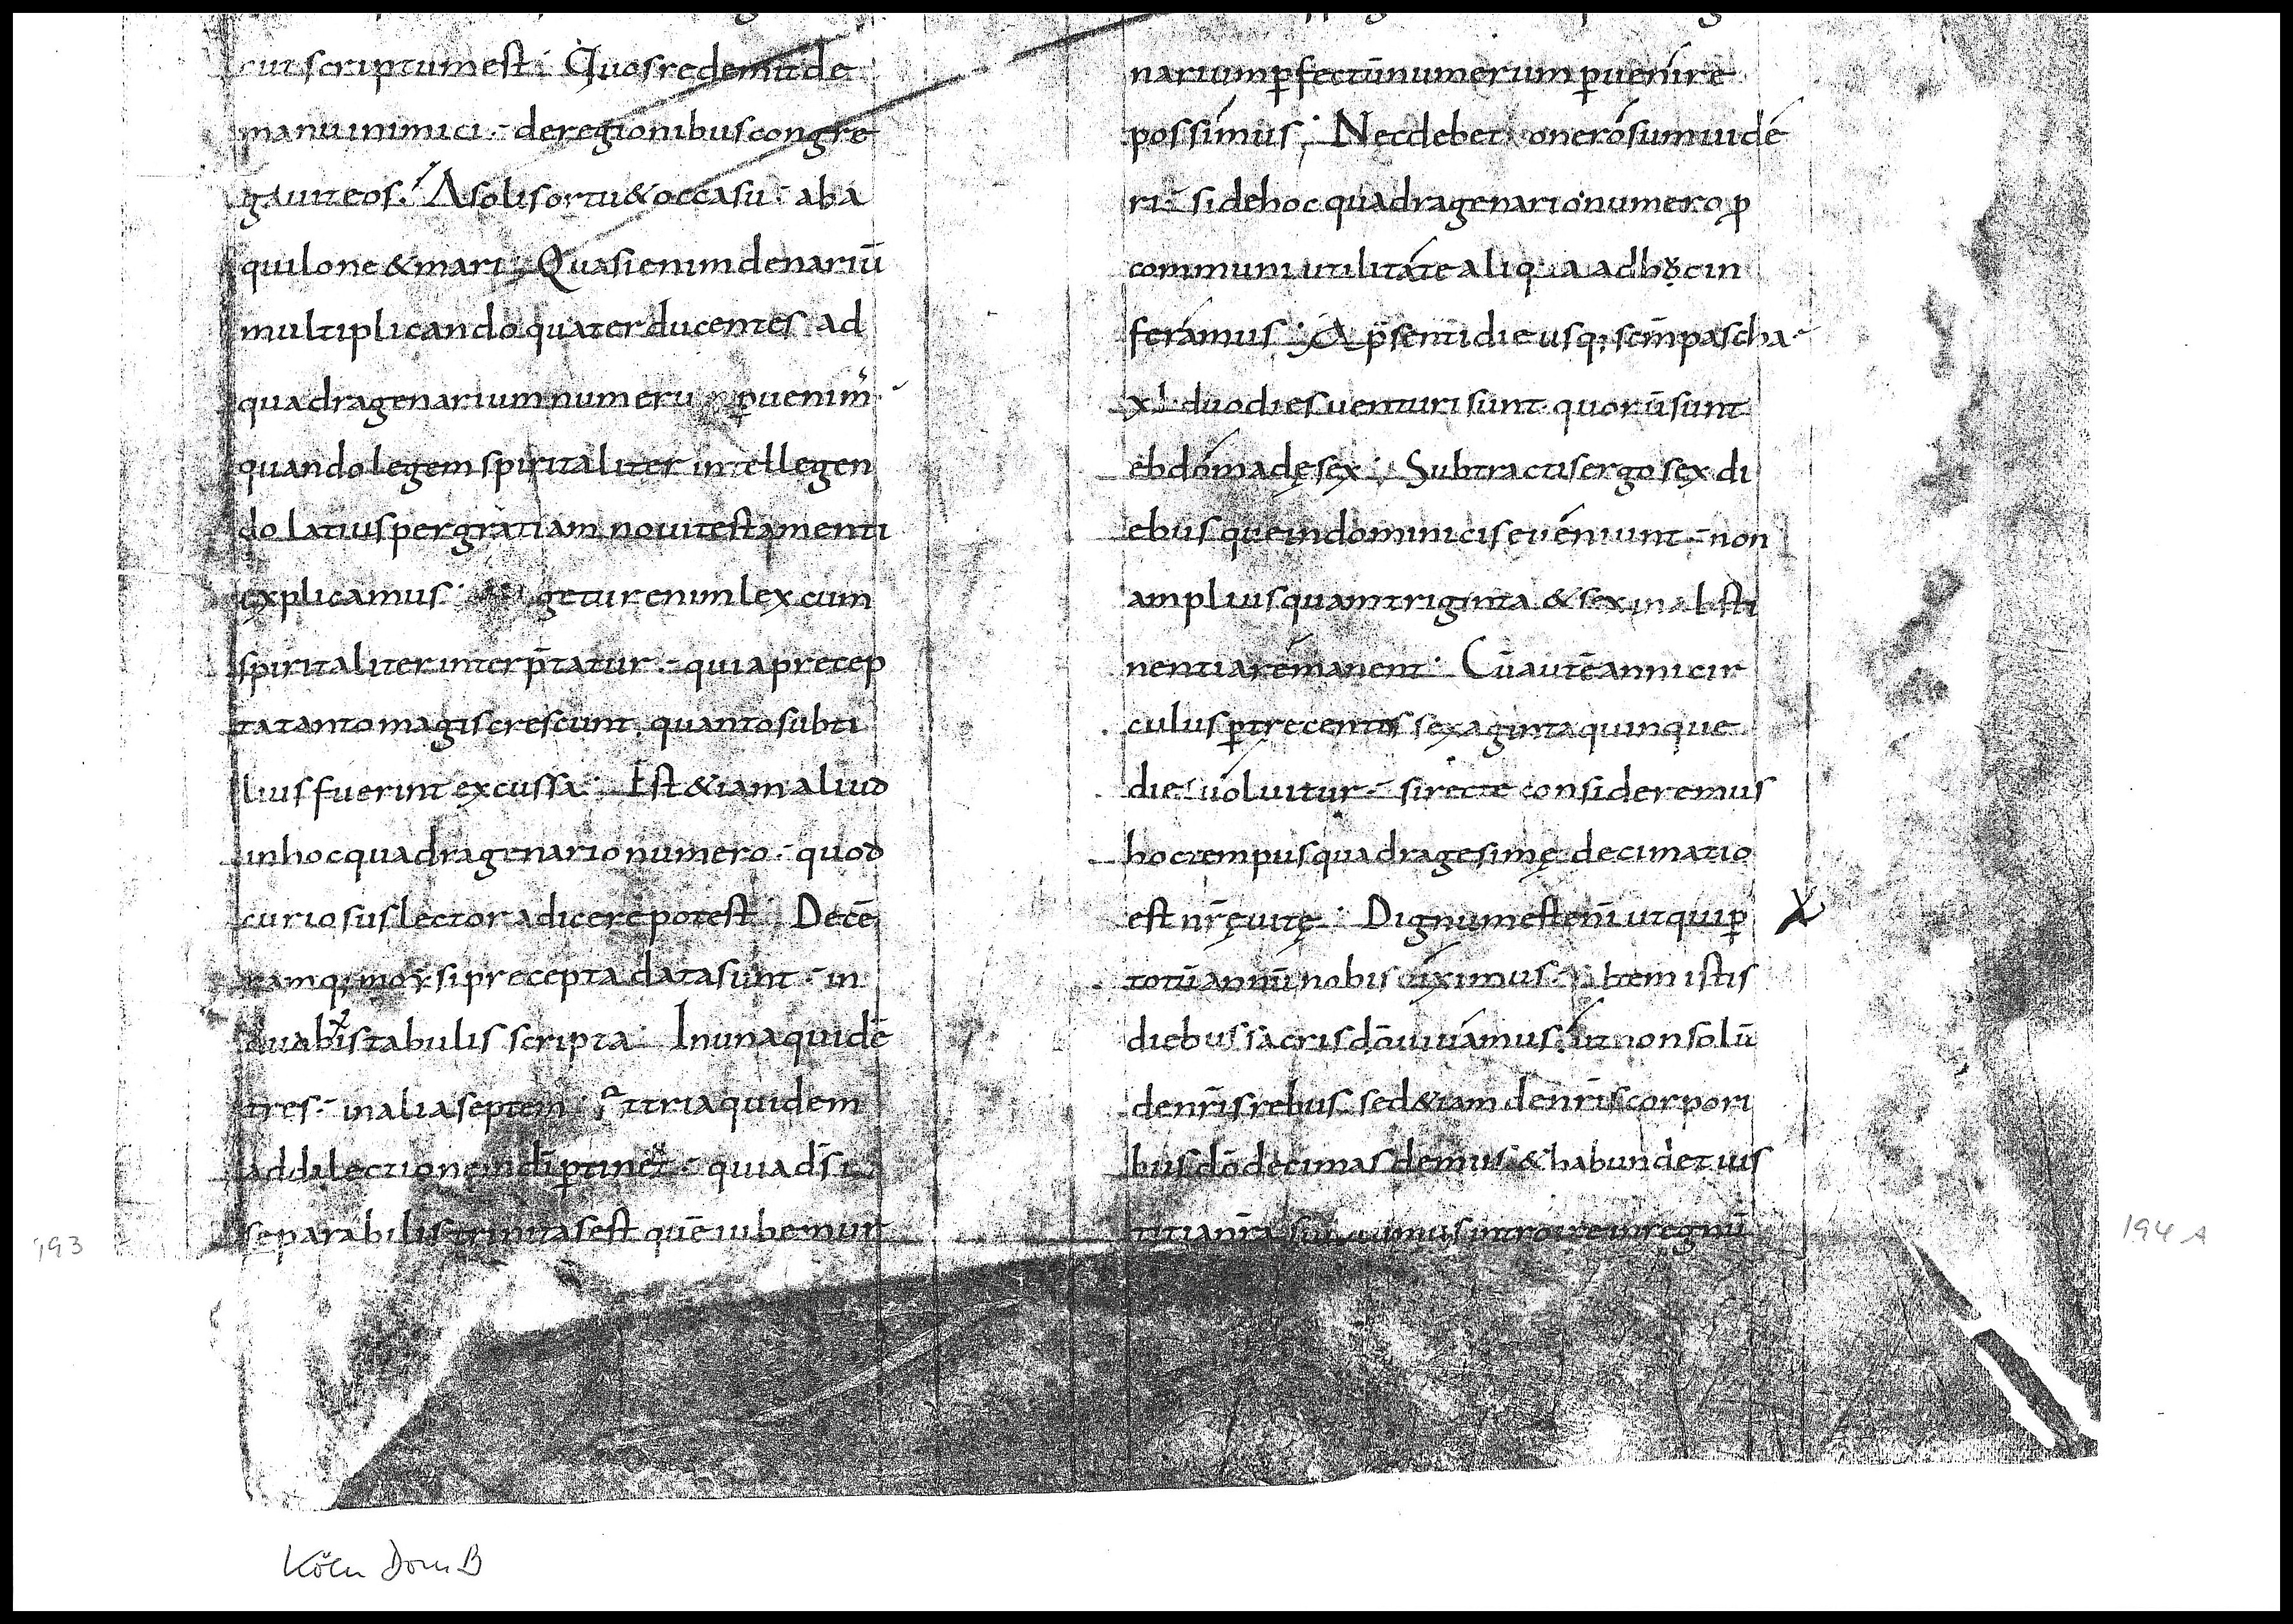 sicut scriptum est: Quos redemit de
manu inimici. deregionibus congre
gavit eos. A solis ortu & occasu. ab a
quilone & mari; Quasi enim denariū
multiplicando quater ducentes ad
quadragenarium numeru ꝑvenim̄
quando legem spiritaliter intellegen
do latius per gratiam novi testamenti
explicamus. getur enim lex cum
spiritaliter interp̄tatur. quia precep
ta tanto magis crescunt quanto subti
lius fuerint excussa. Est & iam aliud
in hoc quadragenario numero. quod
curiosus lector adicere potest. Decē
namq; moysi precepta data sunt. in
duab; istabulis scripta. In una quidē
tres. in alia septem tria quidem
ad dilectionem dī ꝑtinet. quia d̄s i
separabilis trinitas est quē iubemur
narium ꝑfectū numerum ꝑvenire
possimus; Nec debet onerosum uide
ri. si dehoc quadragenario numero ꝓ
communi utilitate aliqua adhuc in
feramus; A p̄senti die usq; sc̄m pascha.
xl duo dies venturi sunt. quorū sunt
ebdomadę sex; Subtractis ergo sex di
ebus que in dominicis eveniunt. non
amplius quam triginta & sex in absti
nentia remanent. Cū autē anni cir
culus ꝑ trecentos sexaginta quinque
dies uoluitur. si recte consideremus
hoc tempus quadragesimę decimatio
est nr̄ę vitę. Dignum est eni̅ ut qui ꝑ
totū annū nobis uiximus. item istis
diebus sacris dō uiuamus. ut non solū
denr̄is rebus sed & iam denr̄is corpori
bus dō decimas demus. & habundet ius
titia nr̄a introire in regnū
193
194 A
Köln Dom B